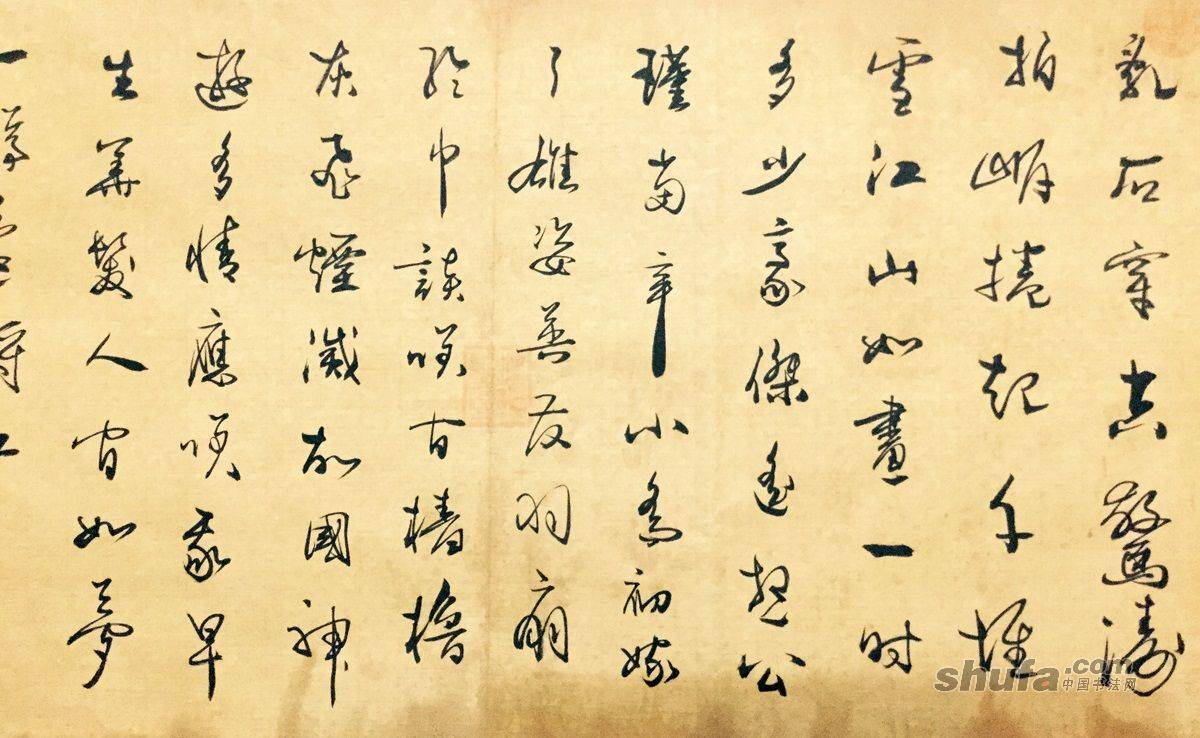 亂石穿空驚濤
拍岸捲起千堆
雪江山如畫一时
多少豪傑遙想公
瑾當年小喬初嫁
了雄姿英发羽扇
綸巾談咲间檣櫓
灰飛煙滅故國神
遊多情應咲我早
生華髮人间如夢
一尊還酹江
shufa.com
中国书法网